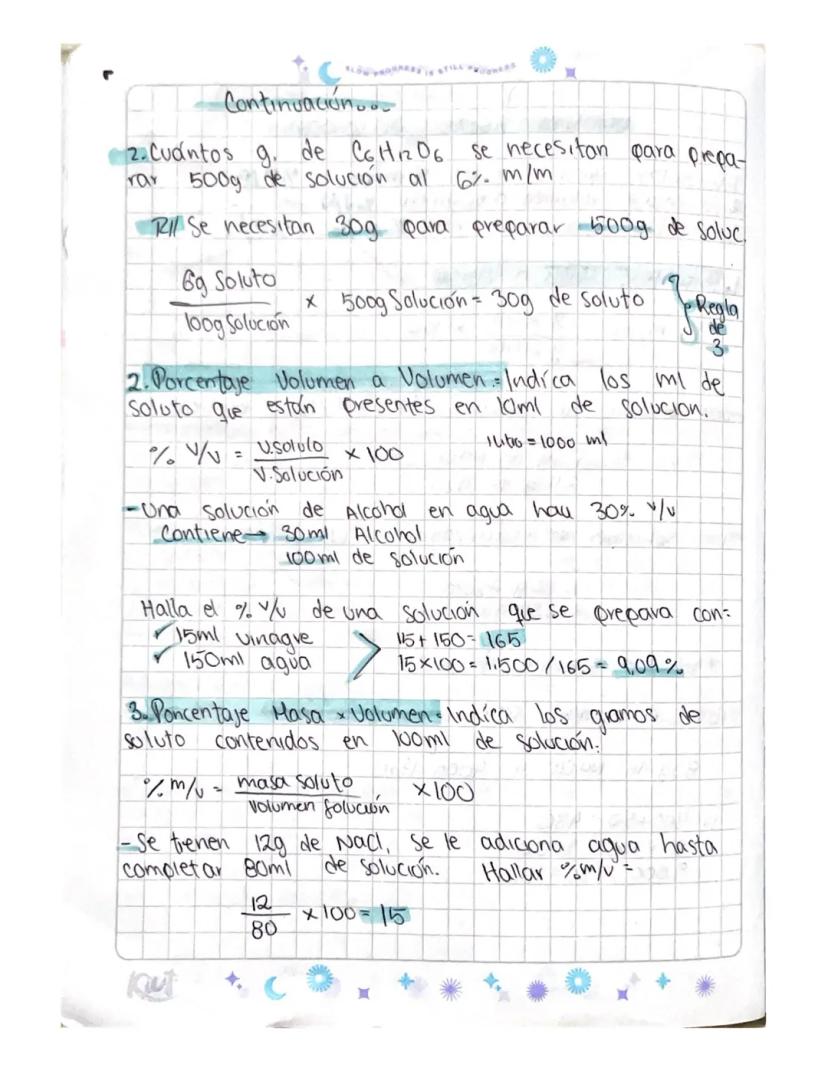 SLOW PROGRESS IS STILL PROGRESS
Continuación...
2. Cuántos g. de C6H12O6 se necesitan para prepa-
rar 500g de solución al 6% m/m
R// Se necesitan 30g para preparar 500g de soluc.
6g Soluto
100g Solución
x 500g Solución = 30g de soluto
Regla
de
3
2. Porcentaje Volumen a Volumen = Indica los ml de
soluto que están presentes en 10ml de solucion.
% V/V = V.soluto x 100
V. Solución
1 litro = 1000 ml
- Una solución de Alcohol en agua hau 30% v/v
Contiene → 30ml Alcohol
100ml de solución
Halla el % v/v de una solución que se prepara con:
✓ 15ml vinagre
✓ 150ml agua
15 + 150 = 165
15x100 = 1.500 / 165 = 9,09%
3. Porcentaje Masa x Volumen = Indica los gramos de
soluto contenidos en 100ml de solución.
% m/v = masa soluto x100
volumen solución
- Se tienen 12g de NaCl, se le adiciona agua hasta
completar 80ml de solución. Hallar % m/v =
12
80
x 100 = 15